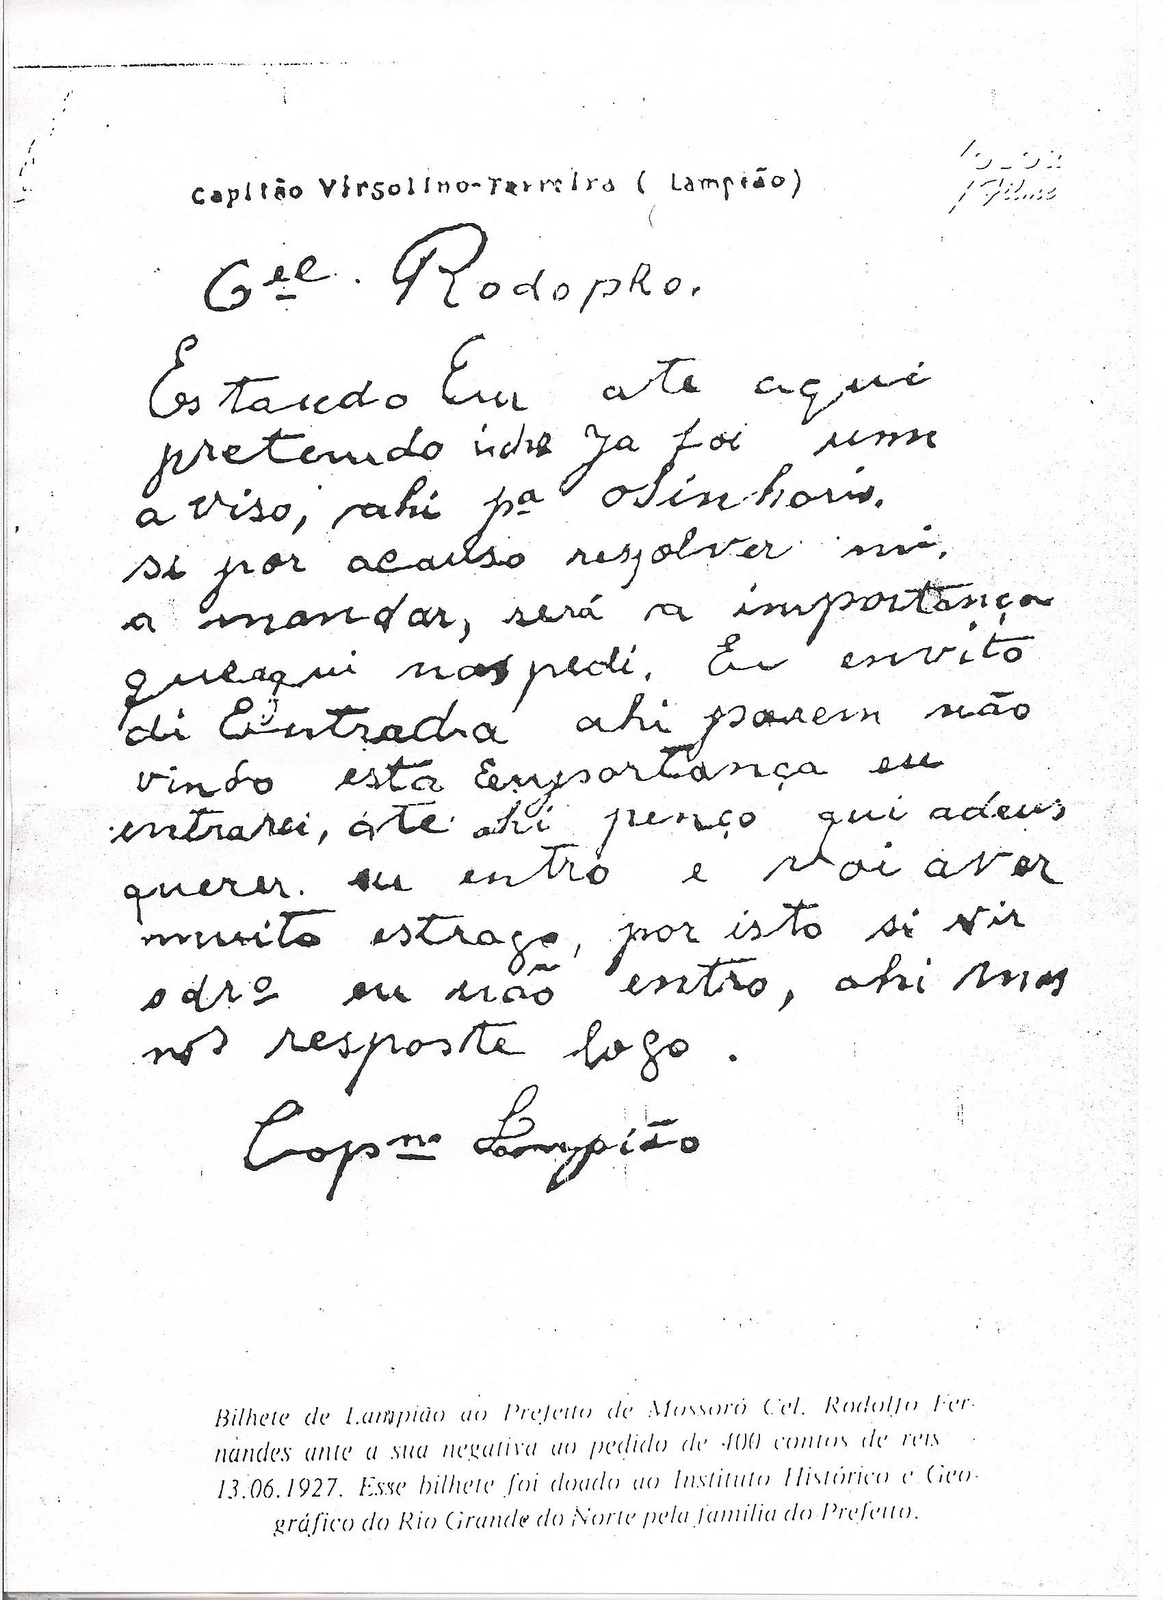 Capitão Virgolino-Ferreira ( Lampião)
Cel. Rodopho.
Estando Eu ate aqui
pretendo Ja foi um
aviso, ahi pa o Sinhoris.
si por acauso rezolver mi.
a mandar, será a importança
que aqui nos pedi. Eu envito
di Entrada ahi porem não
vindo esta Emportança eu
entrarei, ate ahi penço qui adeus
querer. eu entro e vai aver
muito estrago, por isto si vir
o drº eu não entro, ahi mas
nos resposte logo.
Capm Lampião
Bilhete de Lampião ao Prefeito de Mossoró Cel. Rodolfo Fer-
nandes ante a sua negativa ao pedido de 400 contos de reis
13.06.1927. Esse bilhete foi doado ao Instituto Histórico e Geo-
gráfico do Rio Grande do Norte pela família do Prefeito.